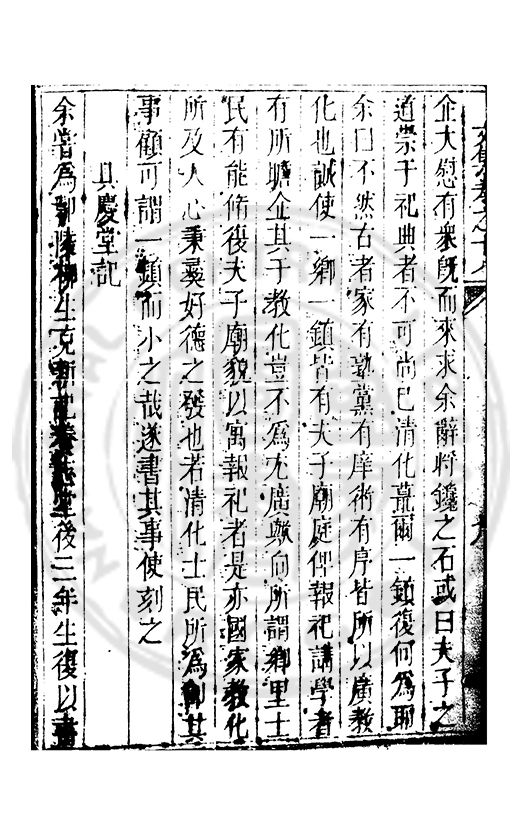 企大慰有衆既而來求余辭將鑱之石或曰夫子之
道崇于祀典者不可尚巳清化蕞爾一鎮復何爲耶
余曰不然古者家有塾黨有庠術有序皆所以廣教
化也誠使一鄉一鎮皆有夫子廟庭俾報祀講學者
有所瞻企其于教化豈不爲尤廣歟向所謂鄉里士
民有能脩復夫子廟貌以寓報祀者是亦國家教化
所及人心秉彛好德之發也若清化士民所爲其
事顧可謂一鎮而小之哉遂書其事使刻之
具慶堂記
余嘗爲柳生克新記堂後三年生復以書